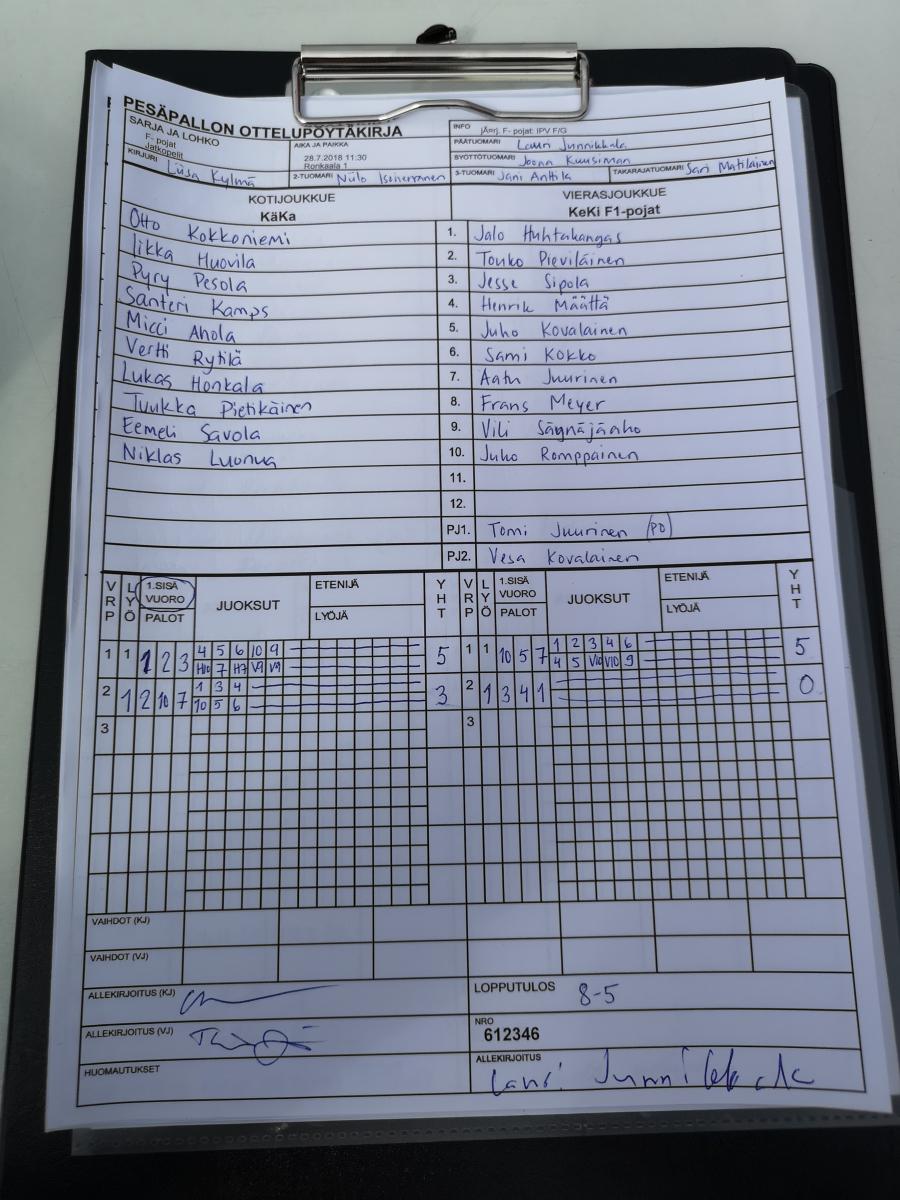 PESÄPALLON OTTELUPÖYTÄKIRJA
SARJA JA LOHKO
F- pojat
Jatkopelit
AIKA JA PAIKKA
28.7.2018 11:30
Ronkaala 1
INFO
jÄrrj. F- pojat: IPV F/G
PÄÄTUOMARI Lauri Junnikkala
SYÖTTÖTUOMARI Joona Kuusiman
KIRJURI Liisa Kylmä
2-TUOMARI Niilo Isoherranen
3-TUOMARI Jani Anttila
TAKARAJATUOMARI Sari Matilainen
KOTIJOUKKUE
KäKa
VIERASJOUKKUE
KeKi F1-pojat
Otto Kokkoniemi 1. Jalo Huhtakangas
Iikka Huovila 2. Touko Pieviläinen
Pyry Pesola 3. Jesse Sipola
Santeri Kamps 4. Henrik Määttä
Micci Ahola 5. Juho Kovalainen
Vertti Rytilä 6. Sami Kokko
Lukas Honkala 7. Aatu Juurinen
Tuukka Pietikäinen 8. Frans Meyer
Eemeli Savola 9. Vili Sägnäjäaho
Niklas Luonua 10. Juho Romppainen
11.
12.
PJ1. Tomi Juurinen (PO)
PJ2. Vesa Kovalainen
VRP LYÖ 1.SISÄ VUORO PALOT JUOKSUT ETENIJÄ LYÖJÄ YHT VRP LYÖ 1.SISÄ VUORO PALOT JUOKSUT ETENIJÄ LYÖJÄ YHT
1 1 1 2 3 4 5 6 10 9 5 1 1 10 5 7 1 2 3 4 6 5
H10 7 H7 V9 V9 4 5 V10 V10 9
2 1 2 10 7 1 3 4 3 2 1 3 4 1 0
10 5 6
3 3
VAIHDOT (KJ)
VAIHDOT (VJ)
ALLEKIRJOITUS (KJ)
LOPPUTULOS 8-5
ALLEKIRJOITUS (VJ)
NRO
612346
HUOMAUTUKSET
ALLEKIRJOITUS
Lauri Junnikkala